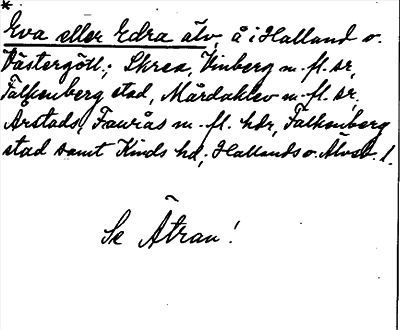 *
Eva eller Edra älv, å i Halland o.
Västergötl.; Skrea, Vinberg m. fl. sr,
Falkenberg stad, Mårdaklev m. fl. sr,
Årstads, Faurås m. fl. hdr, Falkenberg
stad samt Kinds hd; Hallands o. Älvsb. l.
Se Ätran!